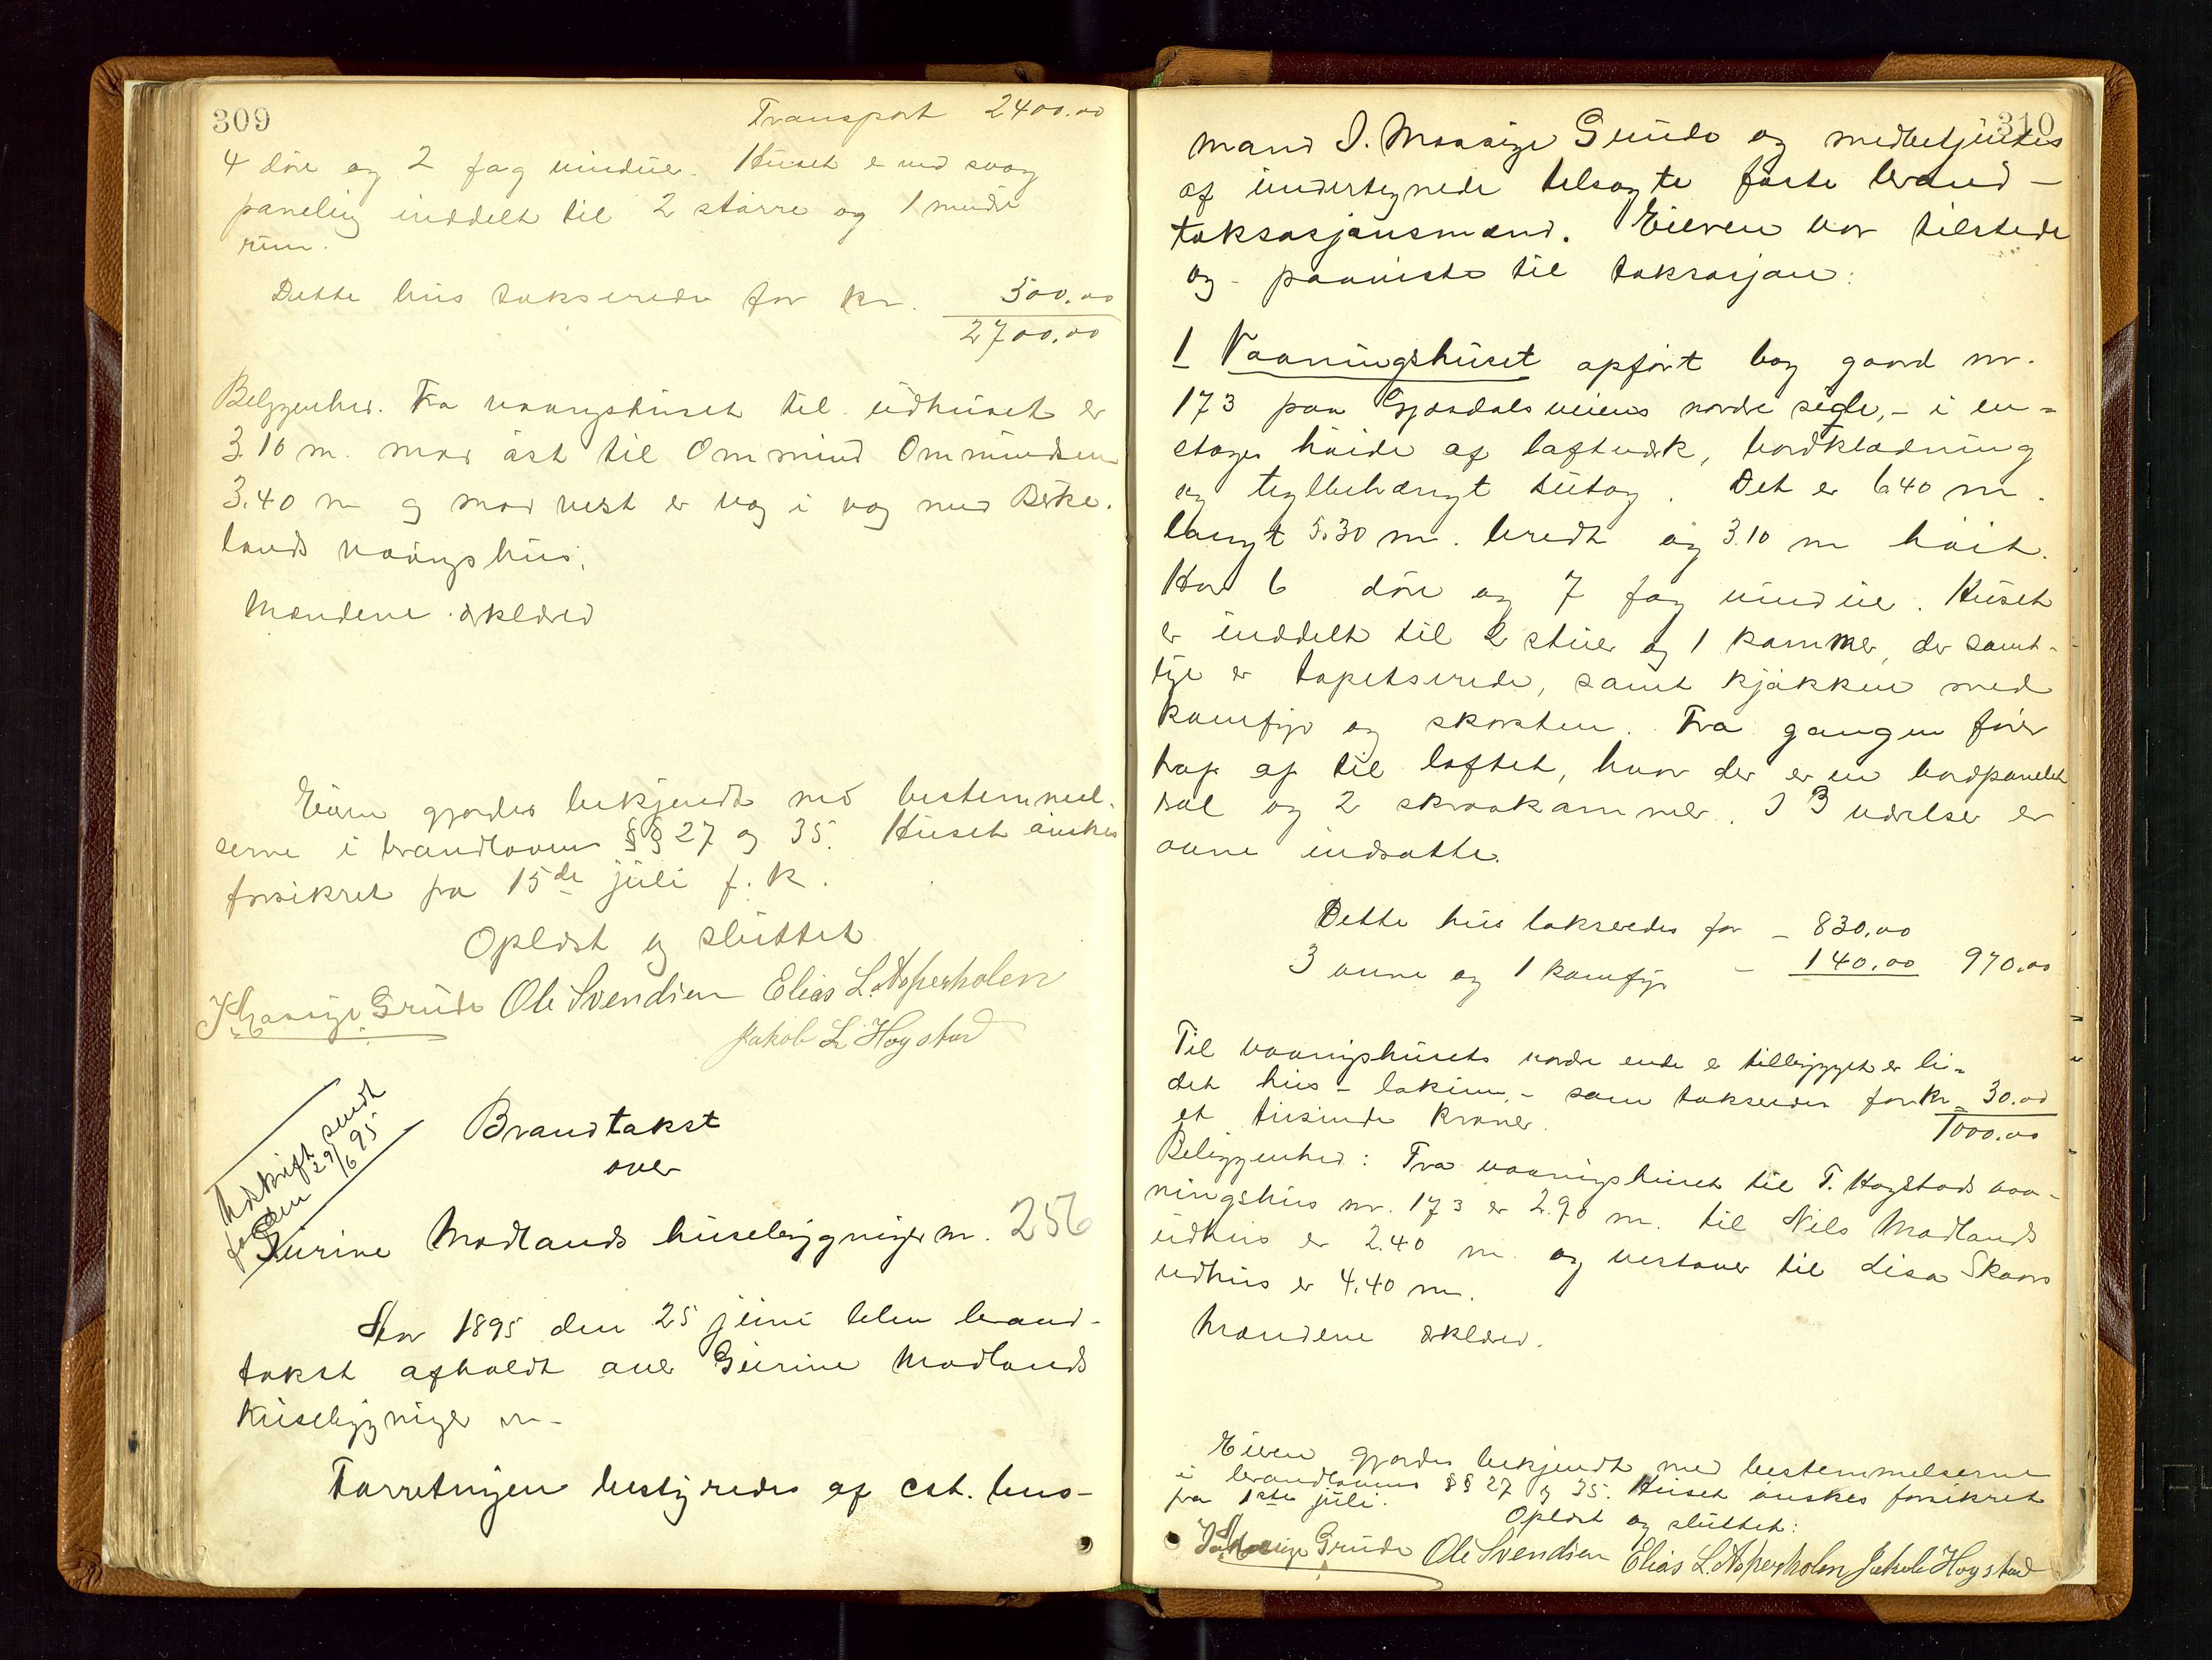 309
Transport 2400.00
4 døre og 2 fag vinduer. Huset er ved svag
paneling inddelt til 2 større og 1 mindre
rum.
Dette hus takseredes for kr. 300.00
2700.00
Beliggenhed. Fra vaaningshuset til udhuset er
3.10 m. mod øst til Ommund Ommundsen
3.40 m og mod vest er væg i væg med Birke-
lands vaaningshus.
Mændene erklæred
Eieren gjordes bekjendt med bestemmel-
serne i brandlovens §§ 27 og 35. Huset ønskes
forsikret fra 15de juli f. k.
Oplæst og sluttet
Grude Ole Svendsen Elias L. Asperholen
Jakob L Høgstad
Udskrift sendt
29/6 95
Brandtakst
over
Gurine Modlands husebygninger m. 256
Aar 1895 den 25 juni blev brand-
takst afholdt over Gurine Modlands
husebygninger m-
Forretningen bestyredes af cst. lens-
310
mand J. Maasige Grude og medbetjentes
af undertegnede tilsagte faste brand-
taksasjonsmænd. Eieren var tilstede
og paaviste til taksasjon:
1 Vaaningshuset opført bag gaard nr.
173 paa Gjesdalsveiens nordre side, - i en-
etages høide af laftverk, bordklædning
og teglbehængt tutag. Det er 6.40 m.
langt 5.30 m. bredt og 3.10 m høit.
Har 6 døre og 7 fag vinduer. Huset
er inddelt til 2 stuer og 1 kammer, der samt-
lige er tapetserede, samt kjøkken med
komfyr og skorsten. Fra gangen fører
trap op til loftet, hvor der er en bordpanelet
sal og 2 skraakammer. I 3 værelser er
ovne indsatte.
Dette hus takseredes for - 830.00
3 ovne og 1 komfyr - 140.00 970.00
Til vaaningshusets nordre ende er tilbygget et li-
det hus - lokum, - som takseredes for kr 30.00
et tusinde kroner. 1000.00
Beliggenhed: Fra vaaningshuset til T. Høgstads vaa-
ningshus nr. 173 er 2.90 m. til Nils Modlands
udhus er 2.40 m. og vestover til Lisa Skaars
udhus er 4.40 m.
Mændene erklæred.
Eieren gjordes bekjendt med bestemmelserne
i brandlovens §§ 27 og 35. Huset ønskes forsikret
fra 1ste juli.
Oplæst og sluttet:
Grude Ole Svendsen Elias L. Asperholen Jakob Høgstad